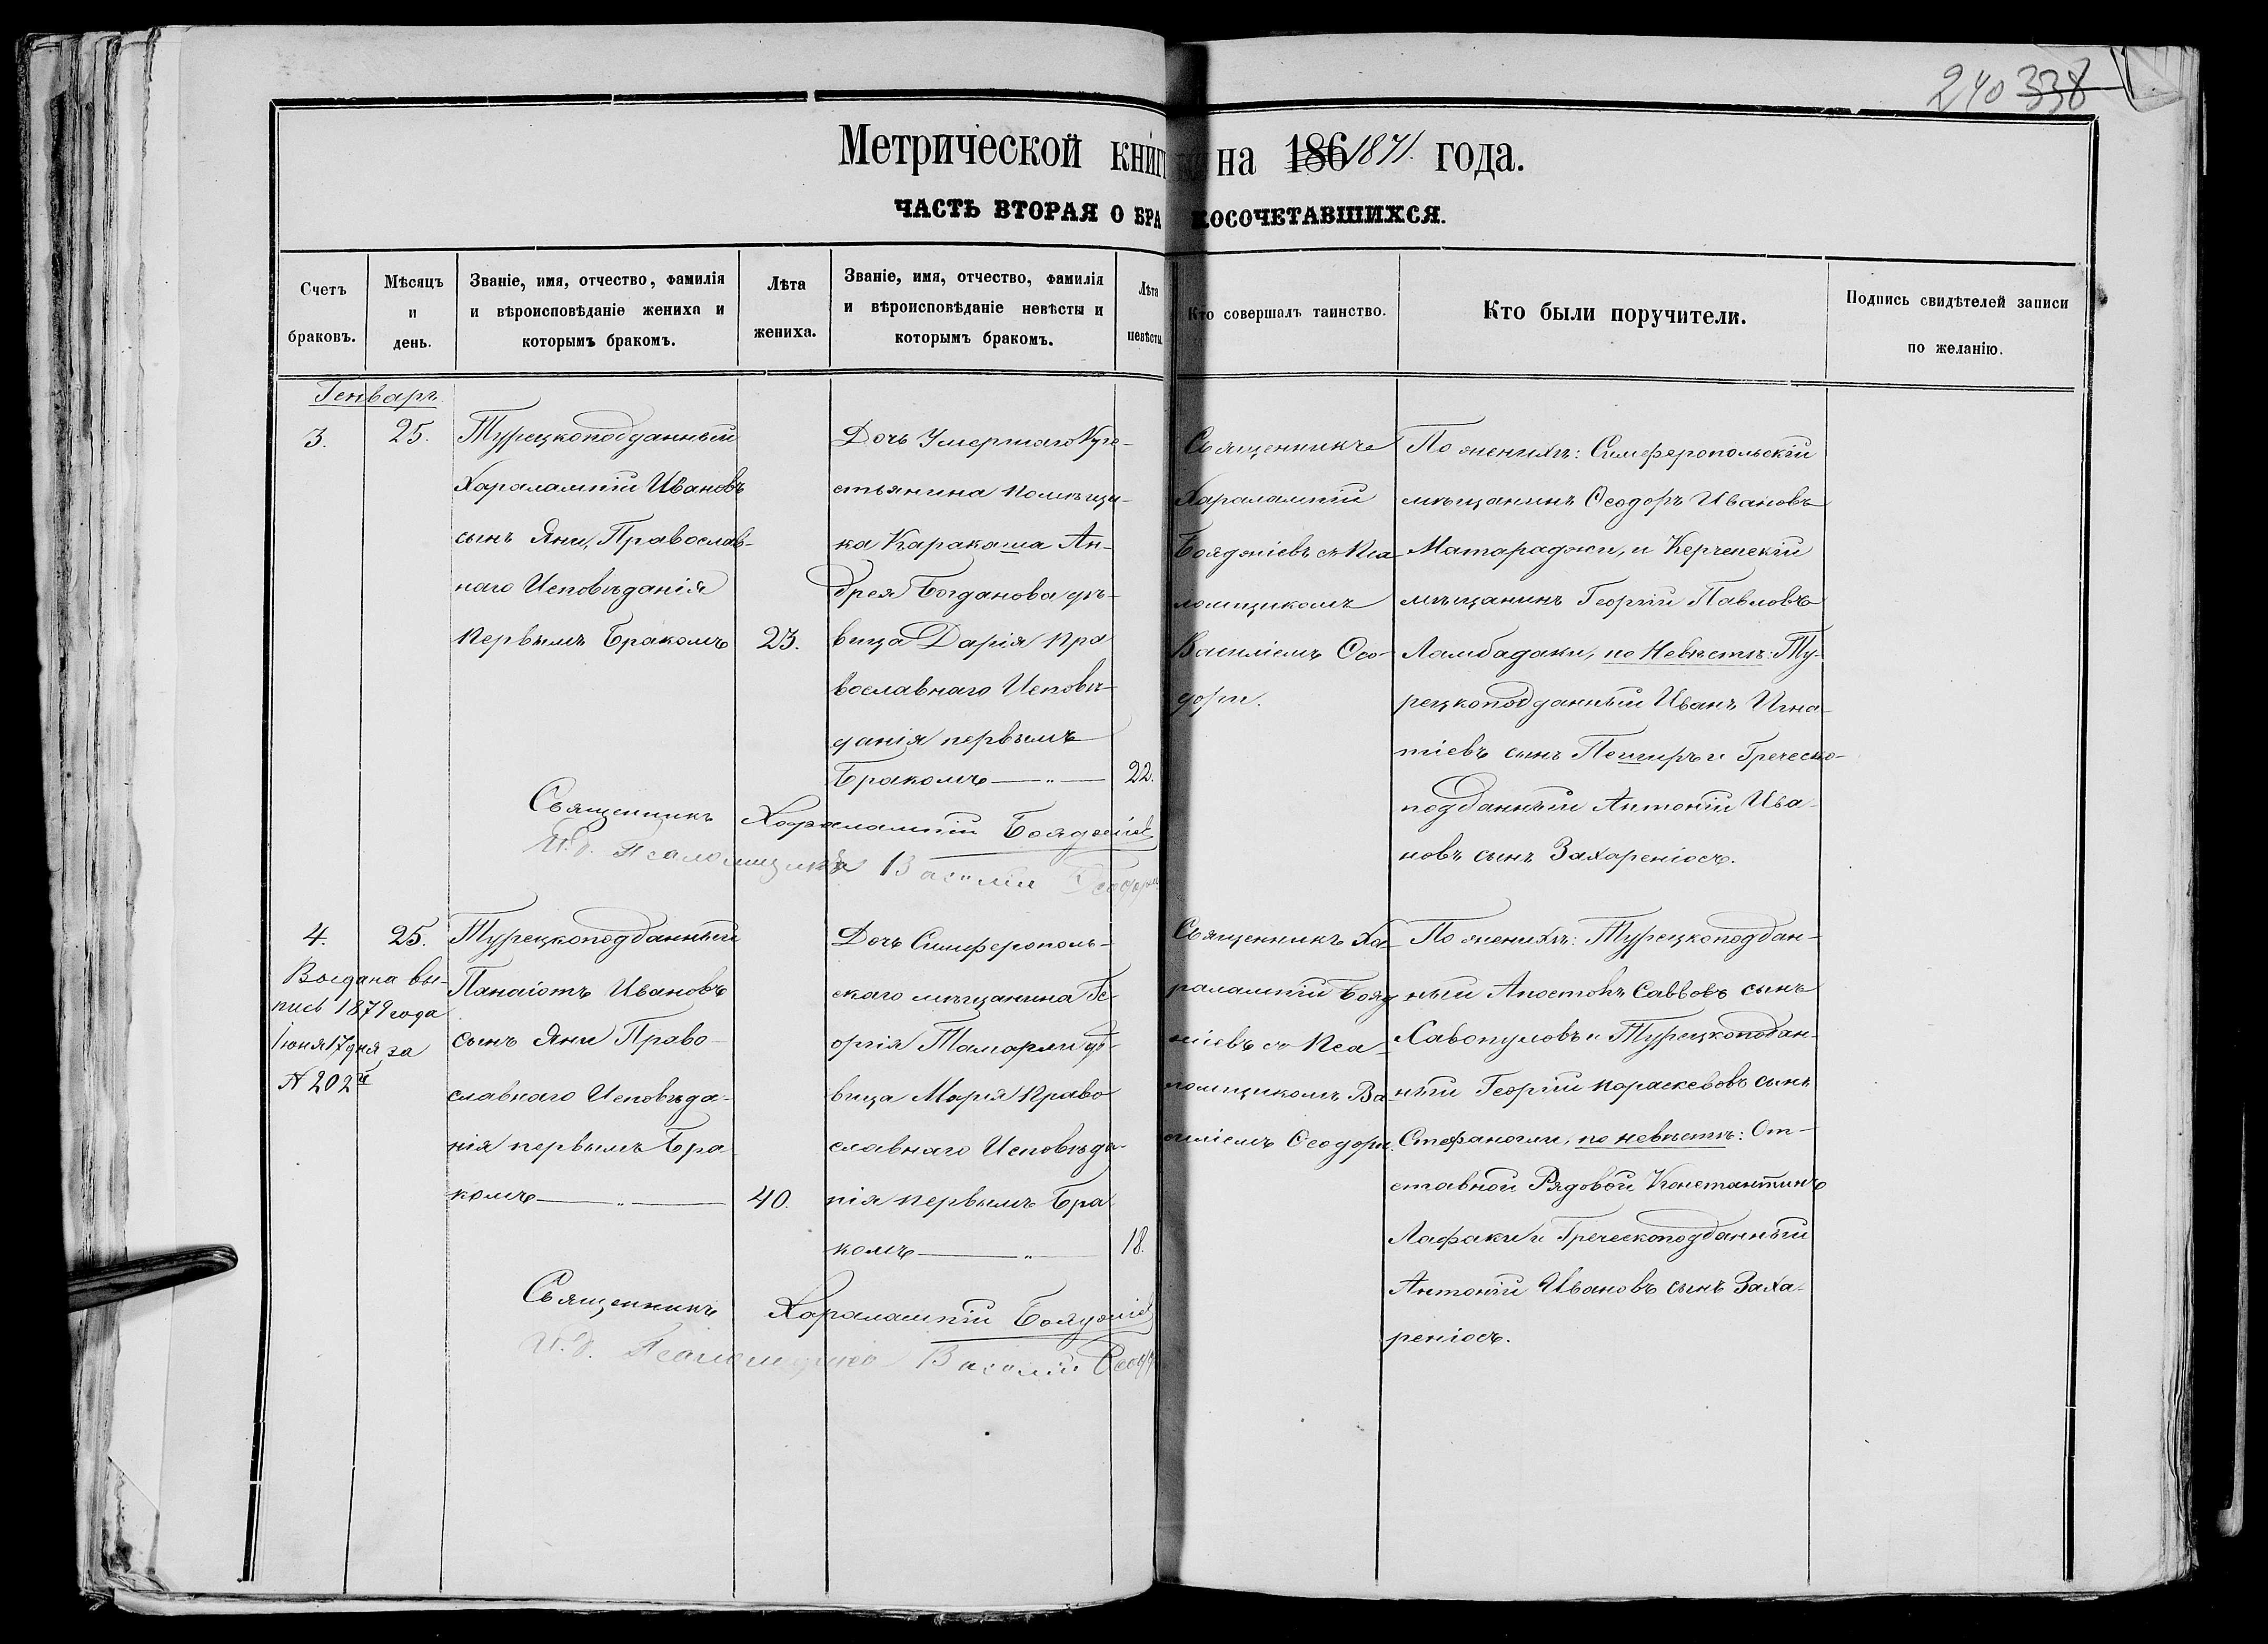 240 338
Метрической книги на 186 1871. года.
ЧАСТЬ ВТОРАЯ О БРАКОСОЧЕТАВШИХСЯ.
Счетъ браковъ.
Мѣсяцъ и день.
Званіе, имя, отчество, фамилія
и вѣроисповѣданіе жениха и
которымъ бракомъ.
Лѣта
жениха.
Званіе, имя, отчество, фамилія
и вѣроисповѣданіе невѣсты и
которымъ бракомъ.
Лѣта
невѣсты.
Кто совершалъ таинство.
Кто были поручители.
Подпись свидѣтелей записи
по желанію.
Генварь
3.
25.
Турецкоподданный
Харалампій Ивановъ
сынъ Яни, Православ-
наго Исповѣданія
первымъ Бракомъ
23.
Дочь Умершаго Кре-
стьянина помѣщи-
ка Каракаша Ан-
дрея Богданова дѣ-
вица Дарія Пра
вославнаго Исповѣ-
данія первымъ
Бракомъ — „ —
22.
Священникъ
Харалампій
Бояджіевъ съ Пса
ломщикомъ
Василіемъ Ѳео-
дори.
По женихѣ: Симферопольскій
мѣщанинъ Ѳеодоръ Ивановъ
Матараджи, и Керченскій
мѣщанинъ Георгій Павловъ
Ламбадаки, по Невѣстѣ: Ту-
рецкоподданный Иванъ Игна-
тіевъ сынъ Пеширъ и Греческо-
подданный Антоній Ива-
новъ сынъ Захареніосъ.
Священникъ Харалампій Бояджіевъ
И.д. Псаломщика Василій Ѳеодори
4.
25.
Выдана вы-
пись 1879 года
Іюня 17 дня за
№ 202й
Турецкоподданный
Панаіотъ Ивановъ
сынъ Яни Право-
славнаго Исповѣда-
нія первымъ Бра
комъ — „ —
40.
Дочь Симферополь-
скаго мѣщанина Ге-
оргія Тамарли дѣ-
вица Марія Право
славнаго Исповѣда-
нія первымъ Бра
комъ — „ —
18.
Священникъ Ха-
ралампій Бояд
жіевъ съ Пса-
ломщикомъ Ва-
силіемъ Ѳеодори.
По женихѣ: Турецкоподдан-
ный Апостолъ Саввовъ сынъ
Савопуловъ и Турецкоподан-
ный Георгій Параскевовъ сынъ
Стефаногли, по невѣстѣ: От-
ставной Рядовой Константинъ
Лафаки и Греческоподданный
Антоній Ивановъ сынъ Заха-
реніосъ.
Священникъ Харалампій Бояджіевъ
И.д. Псаломщика Василій Ѳеодори